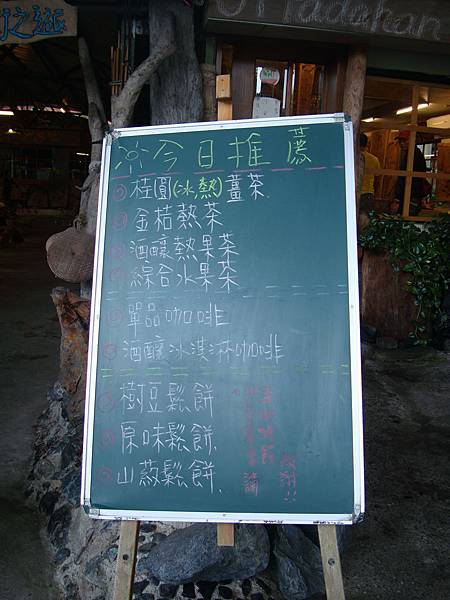 之遊
Madahan
※今日推薦
桂圓(冰熱)薑茶.
金桔熱茶
酒釀熱果茶
綜合水果茶
單品咖啡
酒釀冰淇淋咖啡
樹豆鬆餅
原味鬆餅.
山蘇鬆餅.
謝謝!!